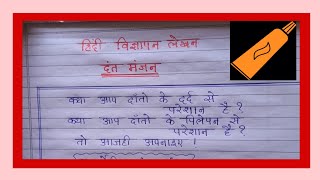 हिंदी विज्ञापन लेखन
दंत मंजन
क्या आप दाँतो के दर्द से
परेशान है?
क्या आप दाँतो के पिलेपन से
परेशान है?
तो आजही अपनाइए।